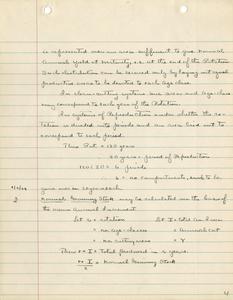 is represented over an area sufficient to give normal
annual yield at maturity, i.e. at the end of the Rotation
Such distribution can be secured only by laying out equal
productive areas to be devoted to each age class.
In clear-cutting systems one area and age-class
may correspond to each year of the Rotation.
In systems of Reproduction under shelter the ro-
tation is divided into periods and an area laid out to
correspond to each period.
Thus Rot = 120 years
20 years = period of Reproduction
120 ÷ 20 = 6 periods
∴ 6 = no compartments, each to be
Normal Growing Stock may be calculated on the basis of
the mean annual increment.
Let r = rotation
= no age-classes
= no cutting areas = r
Then r × I = Total produced in r years.
= Normal Growing Stock
4